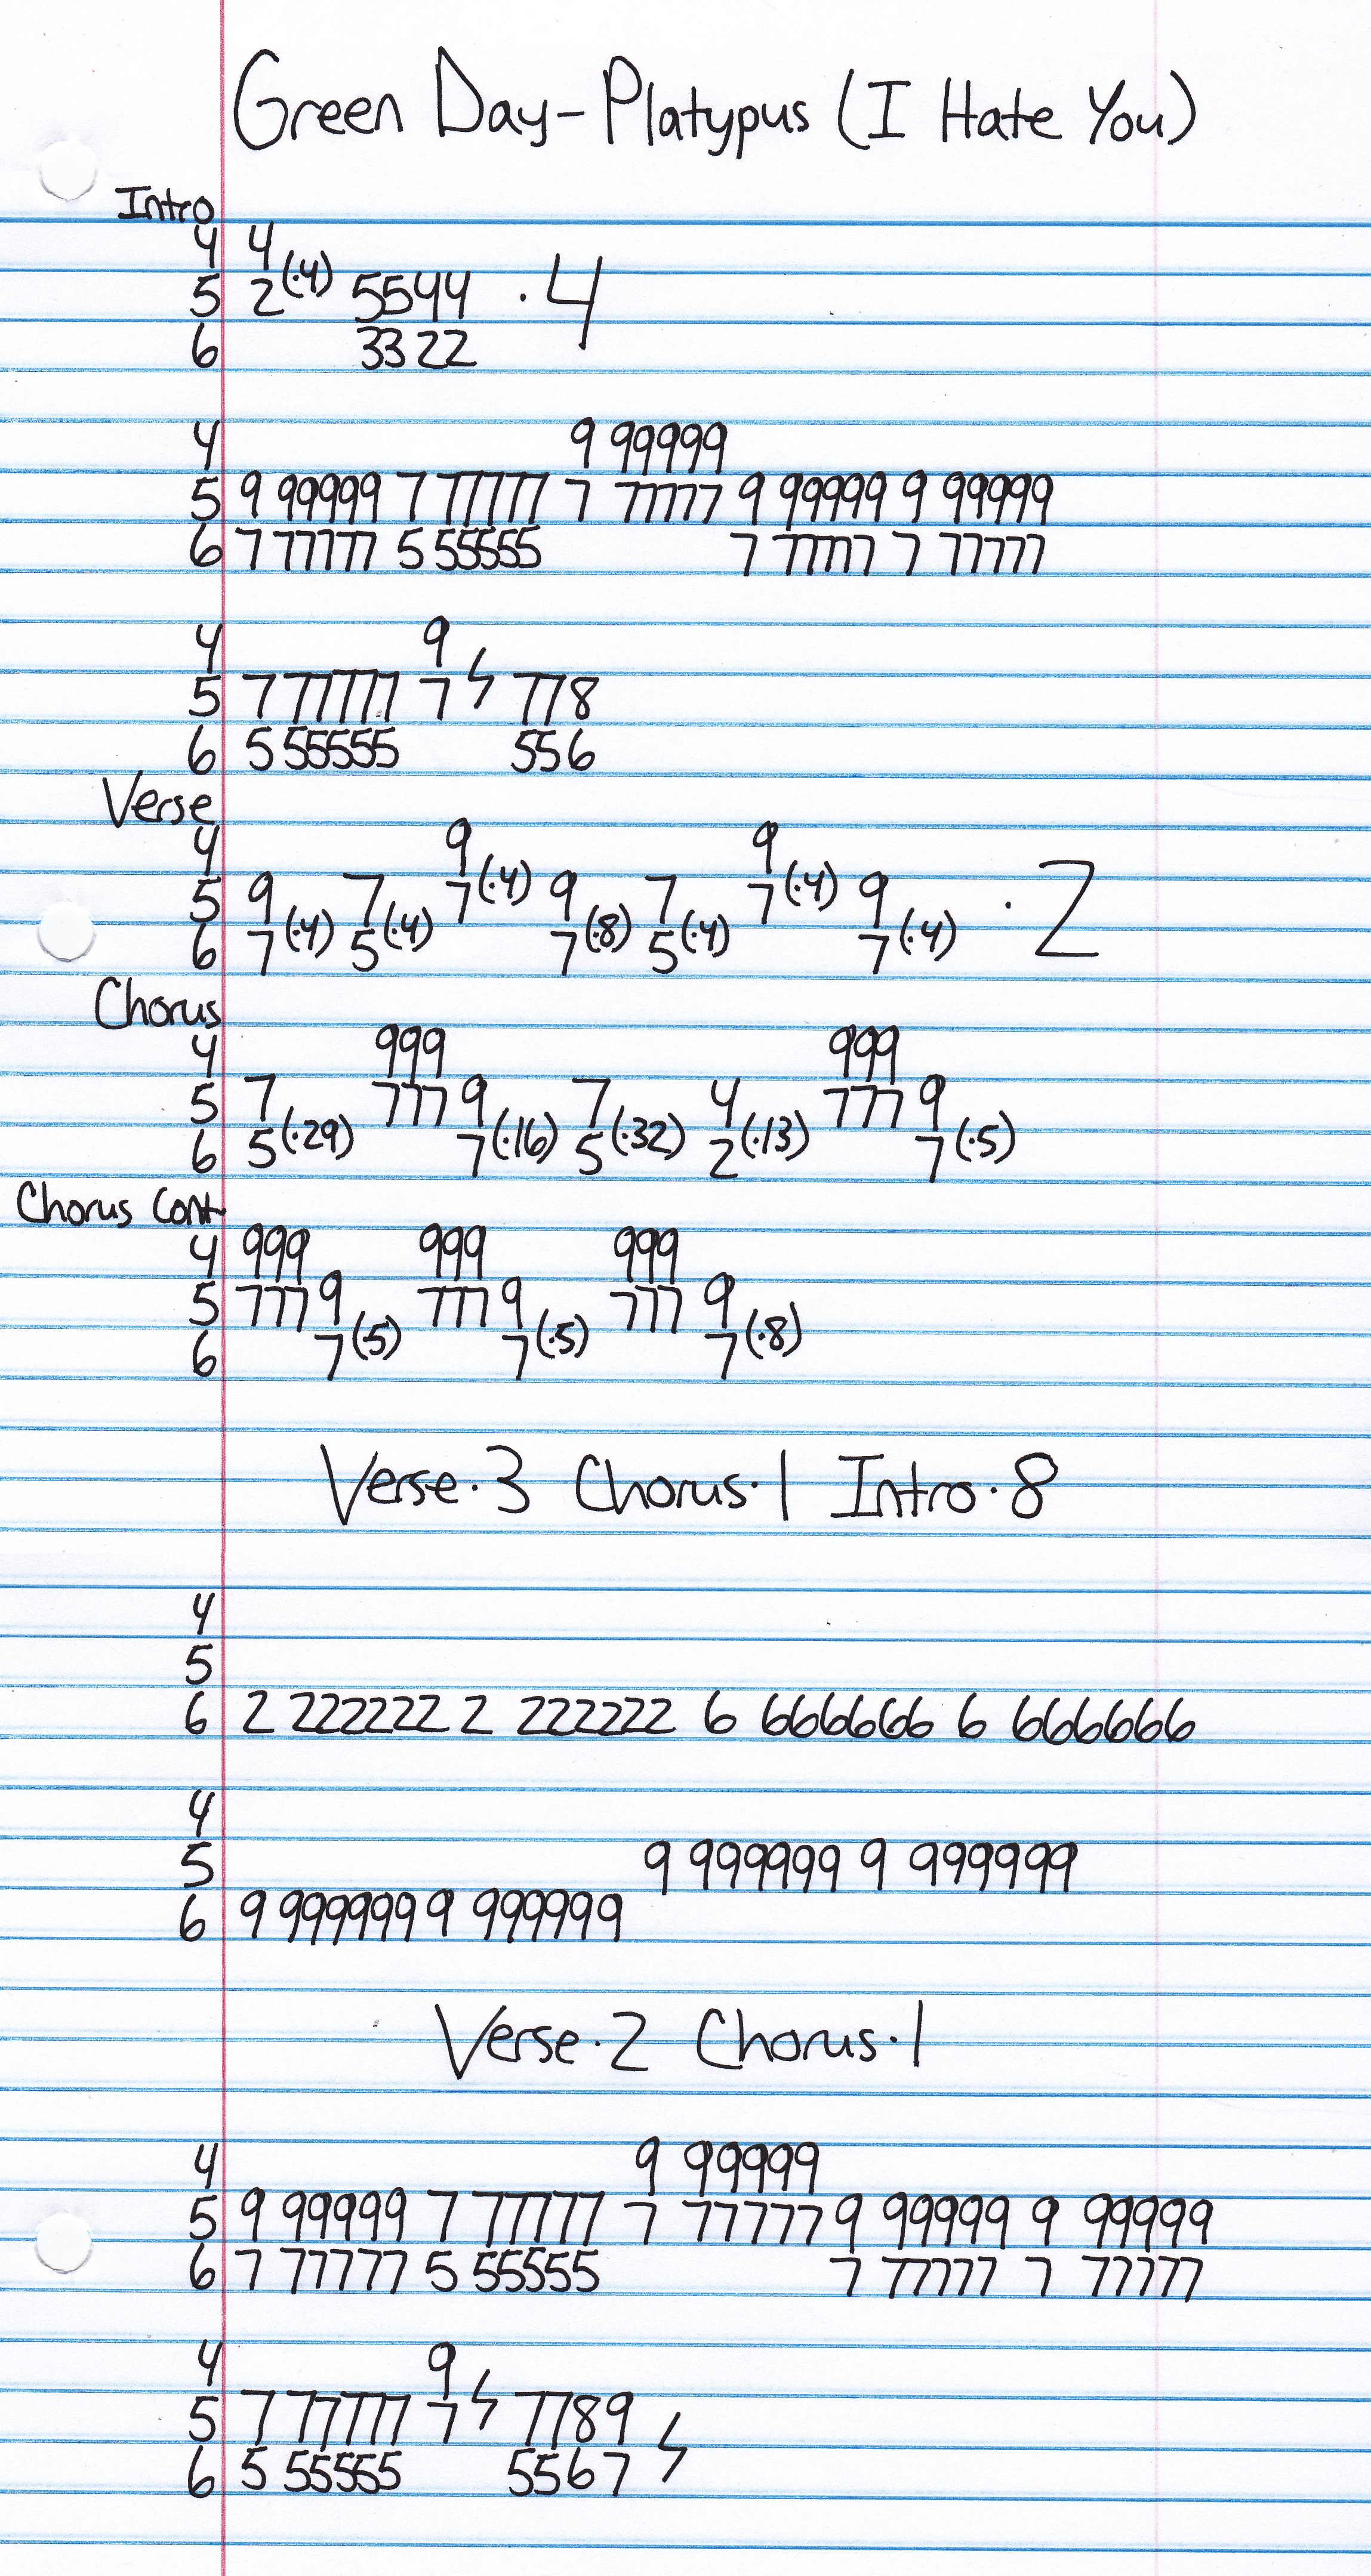 Green Day-Platypus (I Hate You)
Intro
4 4
5 2(·4) 5544 ·4
6 3322
4 9 99999
5 9 99999 7 77777 7 77777 9 99999 9 99999
6 7 77777 5 55555 7 77777 7 77777
4 9
5 7 77777 7 778
6 5 55555 556
Verse
4 9 9
5 9 7 7(·4) 9 7 7(·4) 9 ·2
6 7(·4) 5(·4) 7(·8) 5(·4) 7(·4)
Chorus
4 999 999
5 7 777 9 7 4 777 9
6 5(·29) 7(·16) 5(·32) 2(·13) 7(·5)
Chorus Cont
4 999 999 999
5 777 9 777 9 777 9
6 7(·5) 7(·5) 7(·8)
Verse·3 Chorus·1 Intro·8
4
5
6 2 222222 2 222222 6 666666 6 666666
4
5 9 999999 9 999999
6 9 999999 9 999999
Verse·2 Chorus·1
4 9 99999
5 9 99999 7 77777 7 77777 9 99999 9 99999
6 7 77777 5 55555 7 77777 7 77777
4 9
5 7 77777 7 7789
6 5 55555 5567